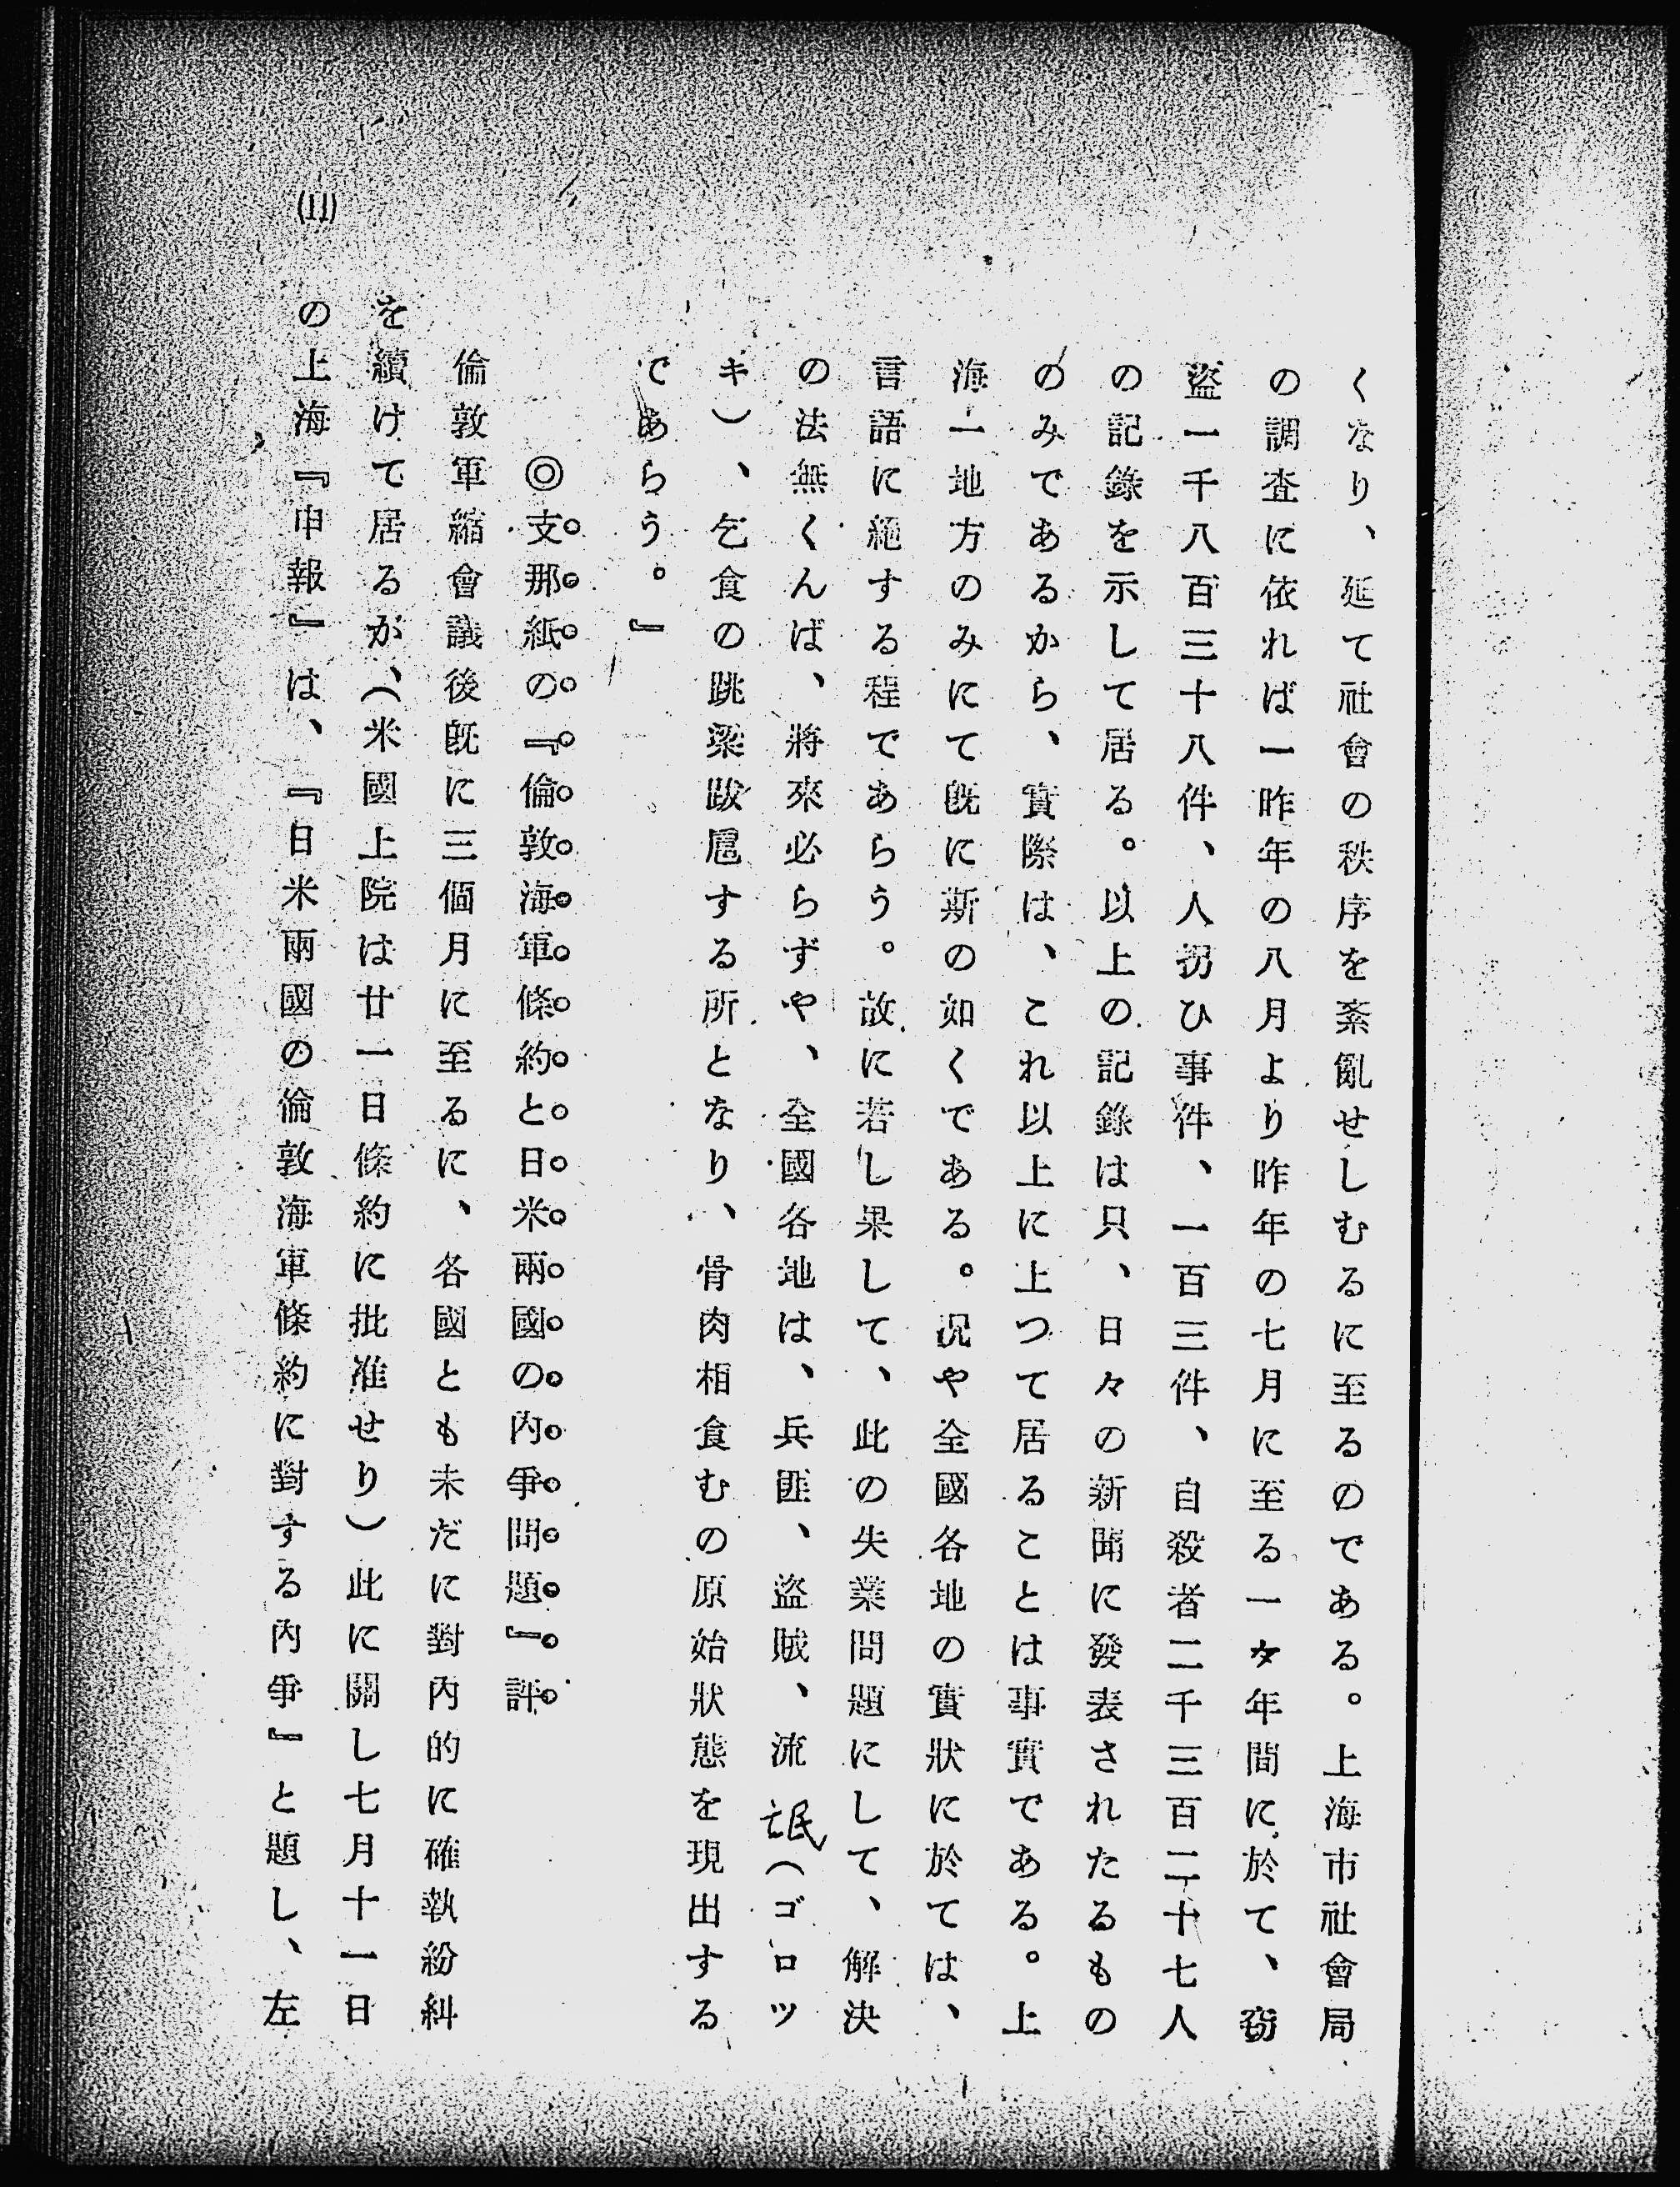 くなり、延て社會の秩序を紊亂せしむるに至るのである。上海市社會局
の調査に依れば一昨年の八月より昨年の七月に至る一ケ年間に於て、竊
盜一千八百三十八件、人拐ひ事件、一百三件、自殺者二千三百二十七人
の記錄を示して居る。以上の記錄は只、日々の新聞に發表されたるもの
のみであるから、實際は、これ以上に上つて居ることは事實である。上
海一地方のみにて既に斯の如くである。況や全國各地の實狀に於ては、
言語に絶する程であらう。故に若し果して、此の失業問題にして、解決
の法無くんば、將來必らずや、全國各地は、兵匪、盜賊、流氓(ゴロツ
キ)、乞食の跳梁跋扈する所となり、骨肉相食むの原始狀態を現出する
であらう。』
◎支那紙の『倫敦海軍條約と日米兩國の內爭問題』評
倫敦軍縮會議後既に三個月に至るに、各國とも未だに對內的に確執紛糾
を續けて居るが、(米國上院は廿一日條約に批准せり)此に關し七月十一日
の上海『申報』は、『日米兩國の倫敦海軍條約に對する內爭』と題し、左
(11)